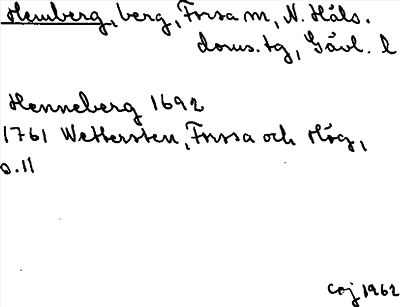 Hemberg, berg, Forsa sn, N. Häls.
doms. tg, Gävl. l
Henneberg 1692
1761 Wettersten, Forssa och Hög,
s. 11
CGJ 1962